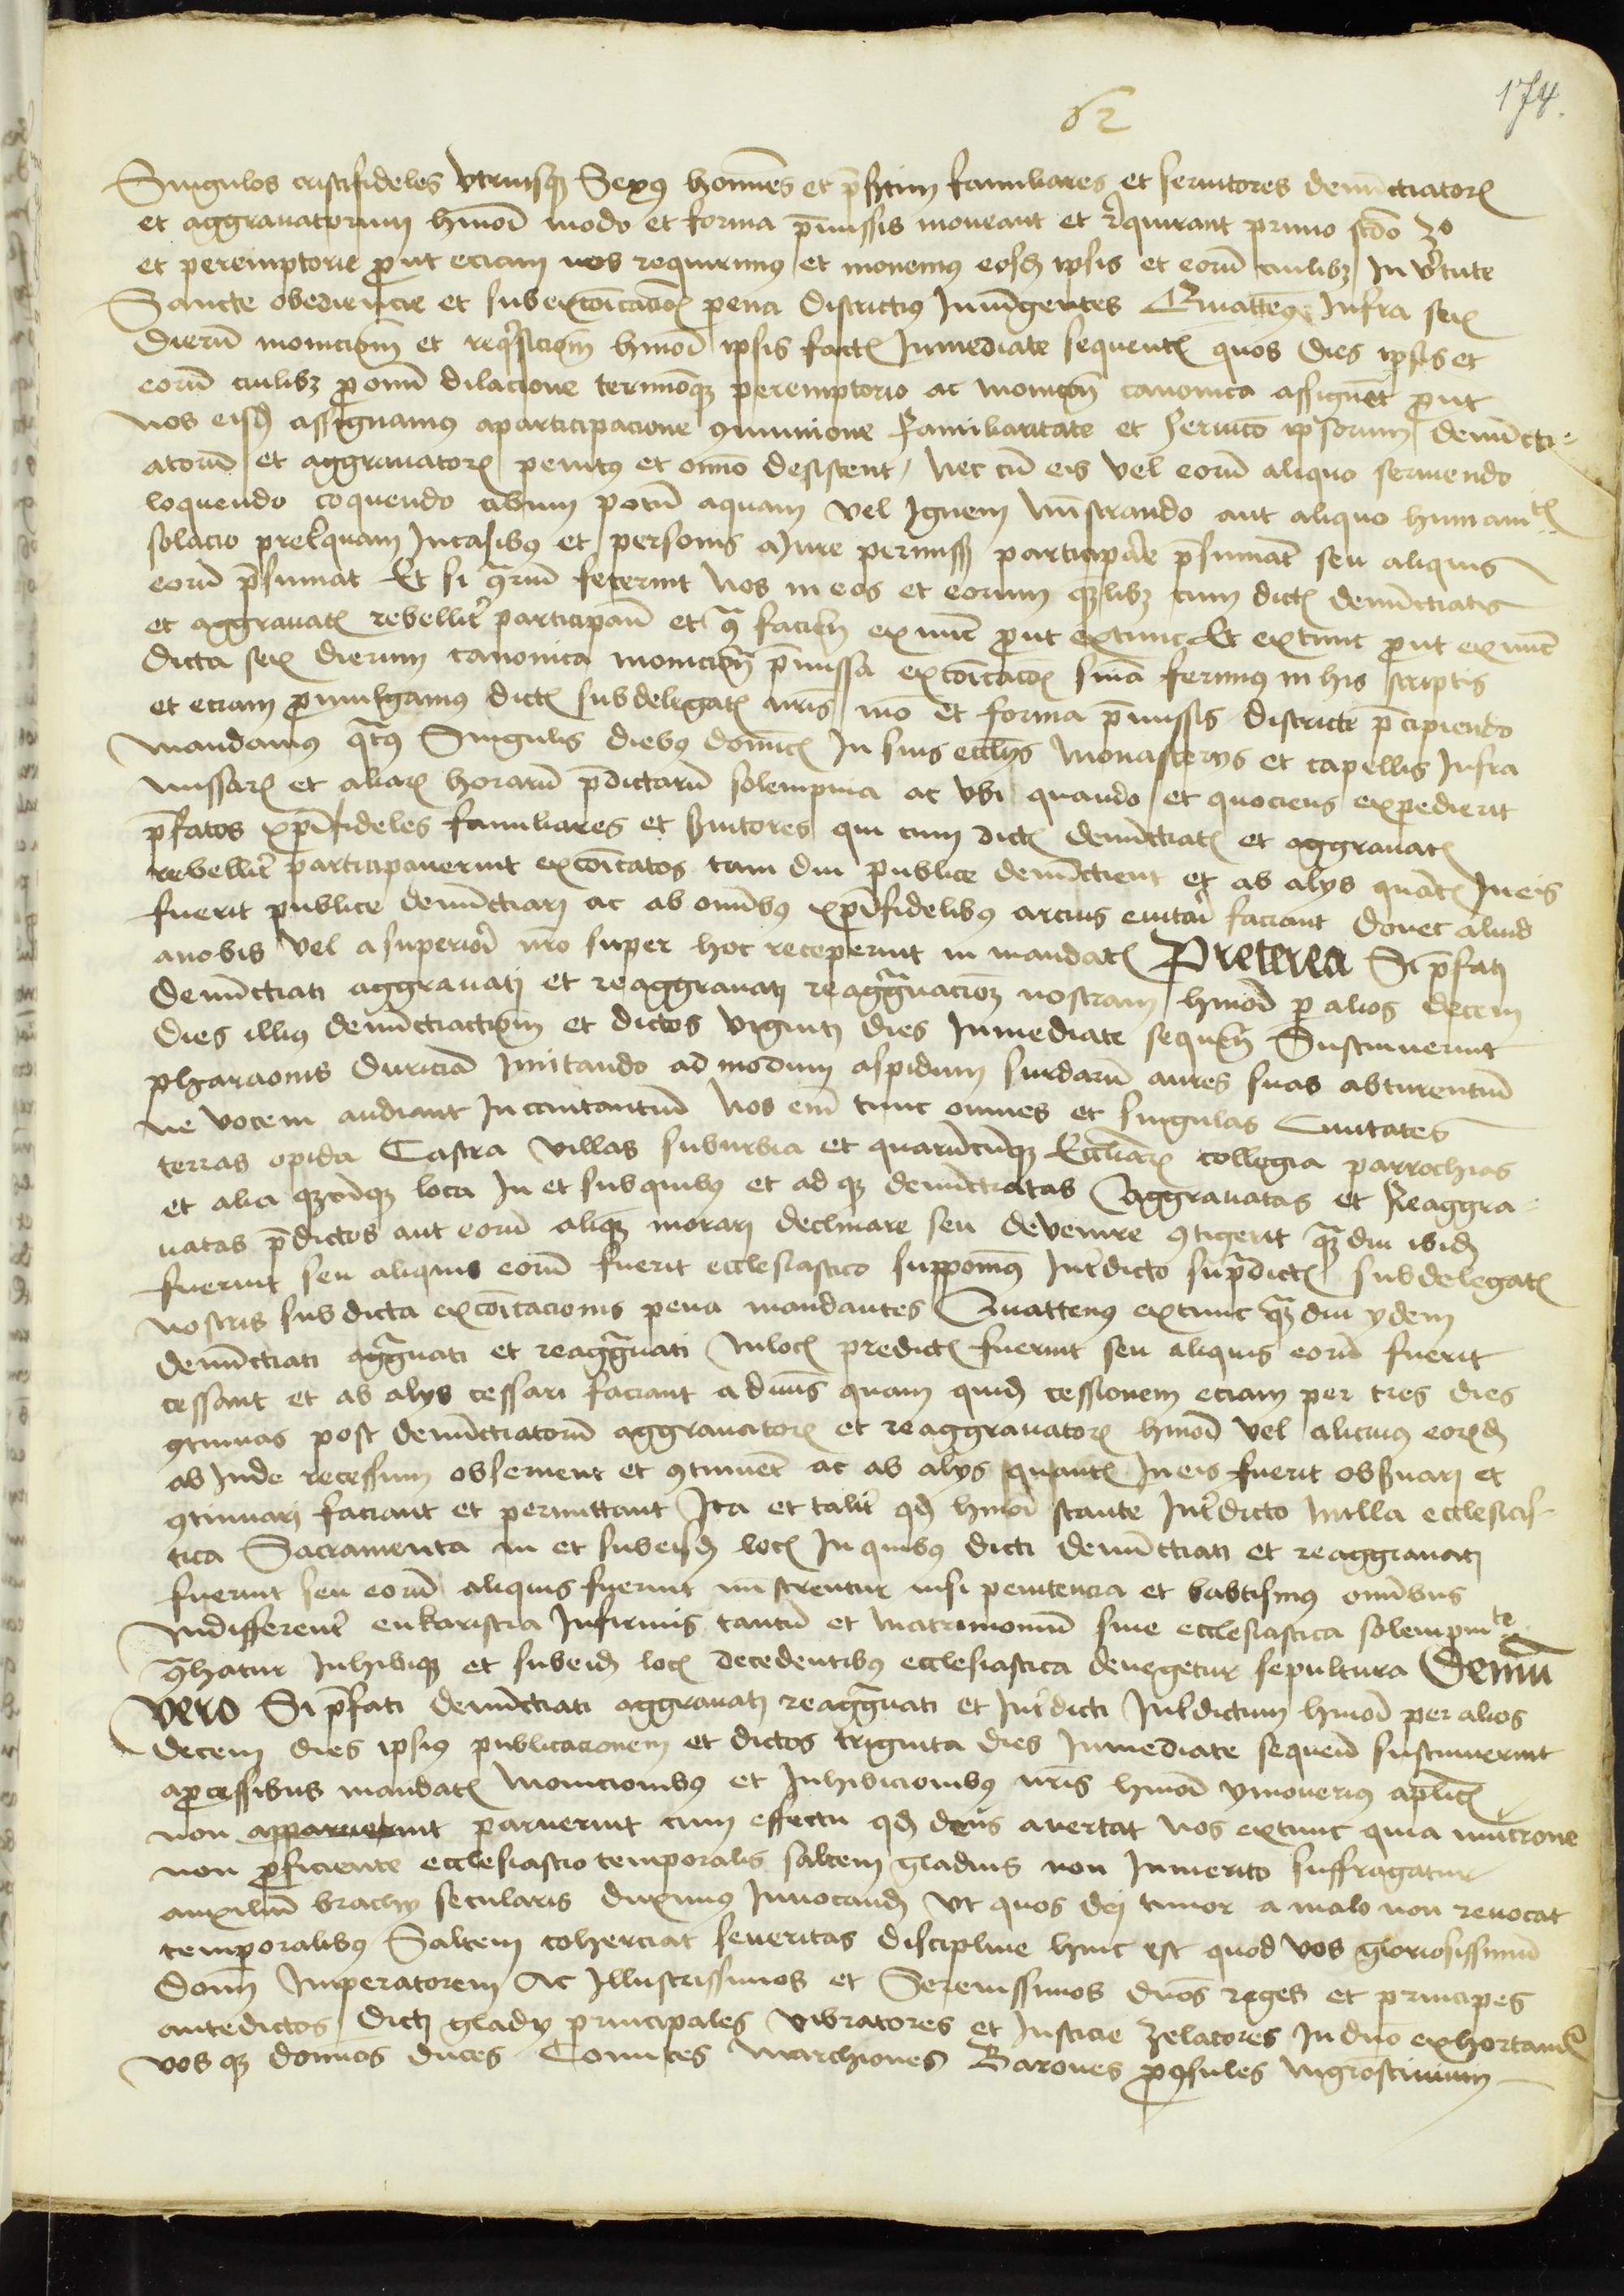 174.
62
Singulos cristifideles vtriusqʒ Sexus homines et p̄sertim familiares et seruitores denūctiatoꝝ
et aggrauatorum hmōi modo et forma p̄missis moneant et r̄quirant primo scdo 3o
et peremptorie ꝓut eciam nos requirimus et monemus eosd̄ ipsis et eorū cuilibʒ In v̄tute
Sancte obediencie et sub excōicaciōis pena districtius Iniūgentes Quatten9 Infra sex
dierū moniciom̄ et reqͥsiciom̄ hmōi ipsis factꝭ Inmediate sequentꝭ quos dies ipsis et
eorū cuilibʒ ꝓ omī dilacione terminoqʒ peremptorio ac moniciom̄ canonica assignēt ꝓut
nos eisd̄ assignamus aparticipacione ꝯmunione familiaritate et seruicō ipsorum denūcti=
atorū et aggrauatoꝝ penitus et omīo desistent / nec cū eis vel eorū aliquo seruiendo
loquendo coquendo cibum potū aquam vel Ignem mīstrando aut aliquo humanitꝭ
solacio preterquam In casibus et personis a Iure permissꝭ participare p̄sumāt seu aliquis
eorū p̄sumat Et si ꝯriū fecerint Nos in eos et eorum quēlibʒ cum dictꝭ denūctiatis
et aggrauatꝭ rebellit̄ participan̄ et ꝯ̄ facien̄ exnūc ꝓut extunc Et extunc ꝓut exnūc
dicta sex dierum canonica moniciom̄ p̄missa excōicacōis sniam ferimus in his scriptis
et eciam ꝓmulgamus dictꝭ subdelegatꝭ nr̄is mō et forma p̄missis districte p̄cipiendo
mandamus qͣtꝰ Singulis diebus dominicꝭ In suis eccl̄ijs monasterijs et capellis Infra
missaꝝ et aliaꝝ horarū p̄dictarū solempnia ac vbi quando et quociens expedierit
p̄fatos xp̄ifideles familiares et s̄uitores qui cum dictꝭ denūctiatꝭ et aggrauatꝭ
rebellit̄ participauerint excōicatos tam diu publice denūctient et ab alijs quātꝭ In eis
fuerit publice denūctiari ac ab omībus xp̄ifidelibus arcius euitari faciant donec aliud
anobis vel a superiori nr̄o super hoc receperint in mandatꝭ Preterea Si p̄fati
denūctiati aggrauati et reaggrauati reaggͣuacioēʒ nostram hmōi ꝑ alios decem
dies illius denūctiactiom̄ et dictos viginti dies Inmediate sequen̄ Sustinuerint
pharaonis duriciā Imitando ad modum aspidum surdarū aures suas obturentiū
ne vocem audiant Incantantiū Nos em̄ tunc omnes et singulas Ciuitates
terras opida Castra villas suburbia et quarūcūqʒ Eccl̄iaꝝ collegia parrochias
et alia qʒcūqʒ loca In et sub quibus et ad qʒ denūctiatas Aggrauatas et Reaggra=
uatas p̄dictos aut eorū aliqʒ morari declinare seu deuenire ꝯtigerit qͣʒ diu ibid̄
fuerint seu aliquis eorū fuerit ecclesiastico supponim9 Int̄dicto supͣdictꝭ subdelegatꝭ
nostris sub dicta excōicacionis pena mandantes Quattenus extunc qͣʒ diu ydem
denūctiati aggͣuati et reaggͣuati In locꝭ predictꝭ fuerint seu aliquis eorū fuerit
cessant et ab alijs cessari faciant a diuīs quam quid̄ cessionem eciam per tres dies
ꝯtinuas post denūctiatorū aggrauatoꝝ et reaggrauatoꝝ hmōi vel alicuius eorūd̄
ab Inde recessum obseruent et ꝯtinuēt ac ab alijs quantꝭ In eis fuerit obs̄uari et
ꝯtinuari faciant et permittant Ita et talit̄ qd̄ hmōi stante Int̄dicto Nulla ecclesias=
tica Sacramenta in et sub eisd̄ locꝭ In quibus dicti denūctiati et reaggrauati
fuerint seu eorū aliquis fuerint mīstrentur nisi penitencia et babtismus omībus
Indifferent̄ eukaristia Infirmis tantū et Matrimoniū sine ecclesiastica solempnite
ꝯ̄hatur Inhibiqʒ et sub eisd̄ locꝭ decedentibus ecclesiastica denegetur sepultura Demū
vero Si p̄fati denūctiati aggrauati reaggͣuati et Int̄dicti Int̄dictum hmōi per alios
decem dies ipsius publicacionem et dictos triginta dies Inmediate sequen̄ sustinuerint
aꝓcessibus mandatꝭ Monicionibus et Inhibicionibus nr̄is hmōi ymouerius ap̄licꝭ
non apparuerint paruerint cum effectu qd̄ deus auertat Nos extunc quia mucrone
non ꝓficiente ecclesiastico temporalis saltem gladius non Inmerito suffragatur
auxiliū brachij secularis duximus Inuocand̄ Vt quos dei timor a malo non reuocat
temporalibus Saltem coherciat seueritas discipline hinc est quod vos gloriosissimū
Dom̄ Imperatorem Ac Illustrissimos et Serenissimos dn̄os reges et principes
antedictos dicti gladij principales vibratores et Iusticie Zelatores In dn̄o exhortand̄
vos qʒ dominos duces Comites Marchiones Barones ꝓꝯsules Mgr̄ostiuium